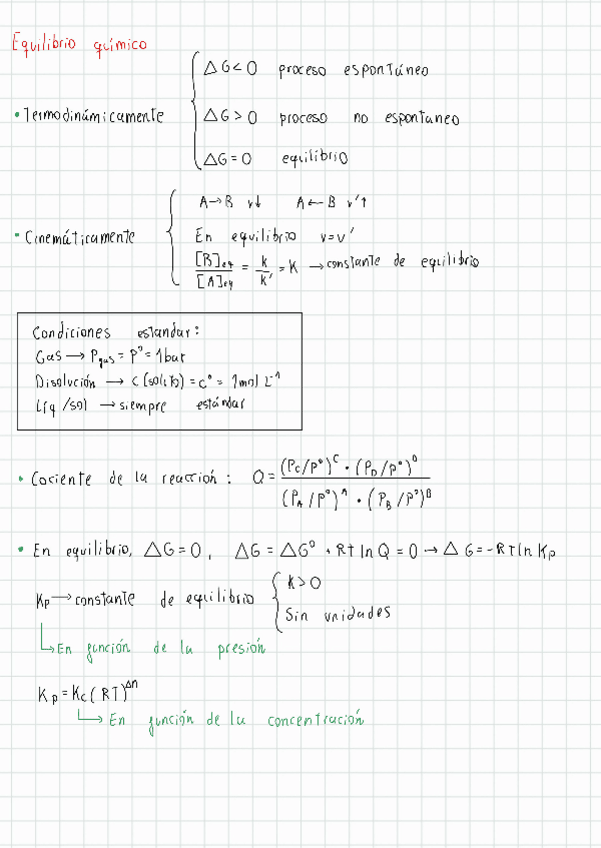 Equilibrio químico
ΔG<0 proceso espontáneo
• Termodinámicamente
ΔG>0 proceso no espontaneo
ΔG=0 equilibrio
A→B v↓ A←B v'↑
• Cinemáticamente
En equilibrio v=v'
[B]eq/[A]eq = k/k' = K → constante de equilibrio
Condiciones estandar:
Gas → Pgas = P° = 1bar
Disolución → c (soluto) = c° = 1mol L⁻¹
Liq /sol → siempre estándar
• Cociente de la reacción: Q = (Pc/P°)^C · (PD/P°)^D / (PA/P°)^A · (PB/P°)^B
• En equilibrio, ΔG=0, ΔG = ΔG° + RT ln Q = 0 → ΔG = -RT ln Kp
K>0
Kp → constante de equilibrio
Sin unidades
En función de la presión
Kp = Kc (RT)^Δn
En función de la concentración